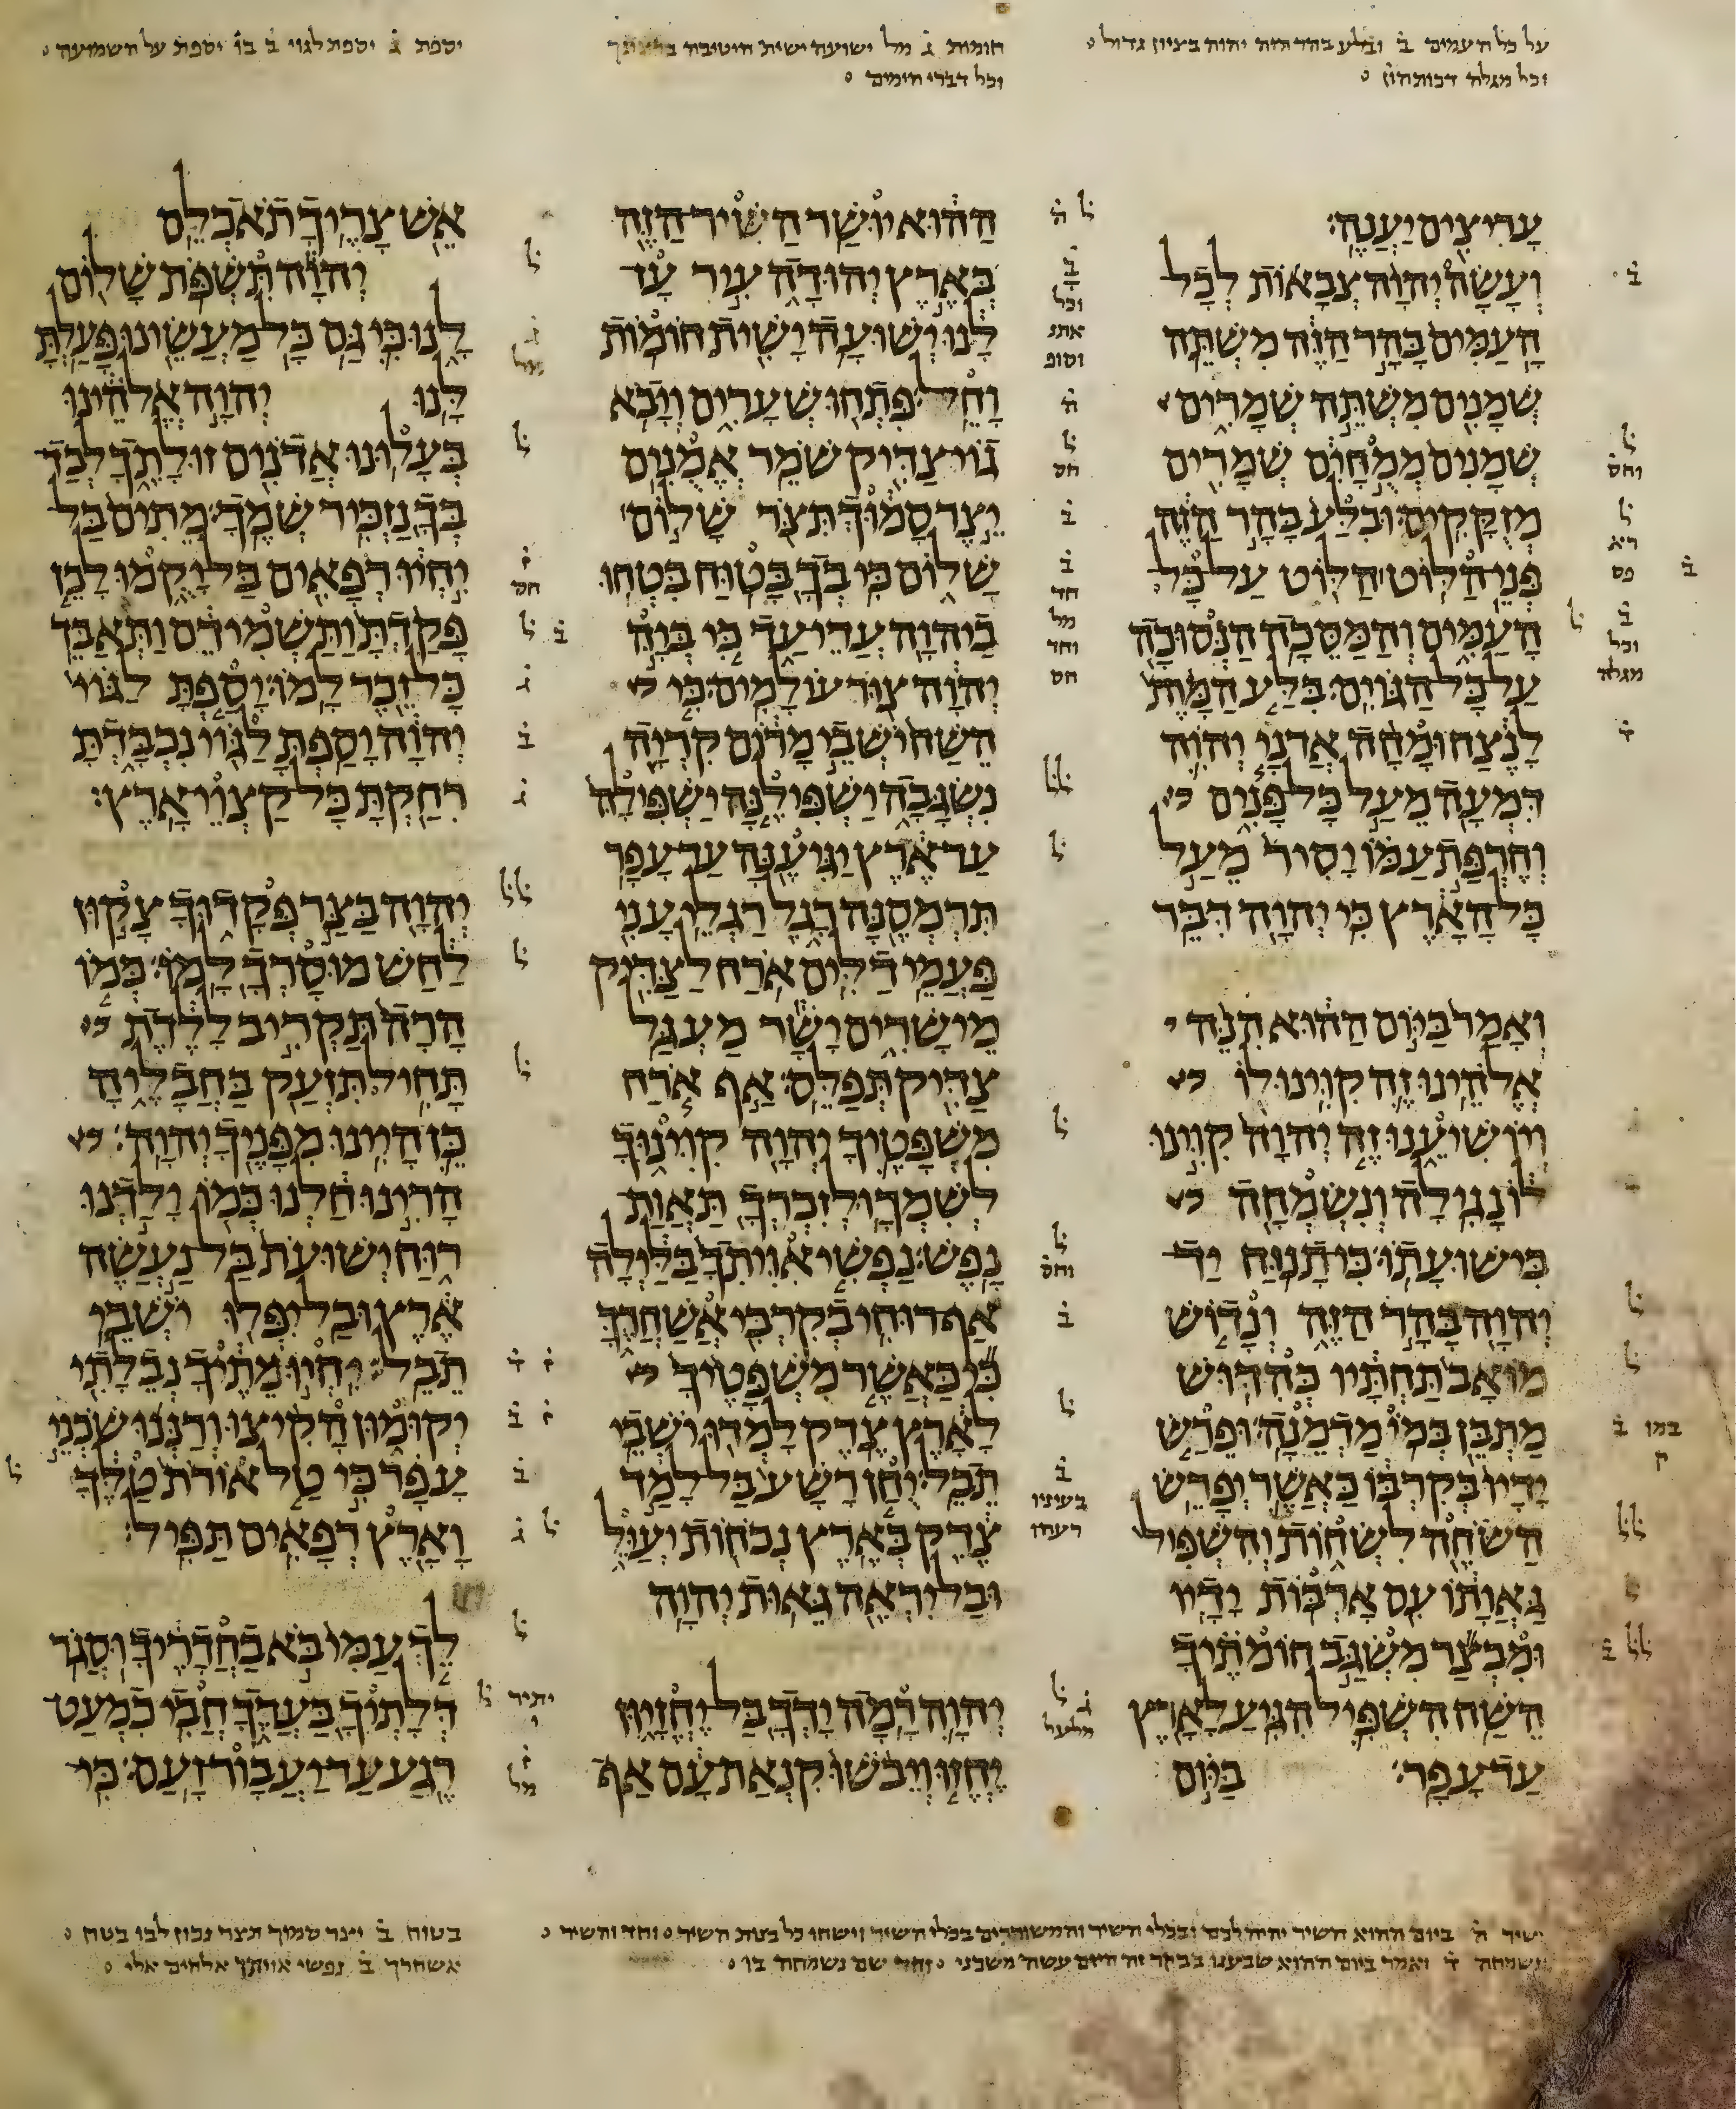 על כל העמים ב̇ ובלע בהר הזה יהוה בציון גדול
וכל מגלה דכותהון
חומות ג̇ מל ישועה ישית היטיבה
וכל דברי הימים
יספת ג̇ יספת לגוי ב̇ בו יספת על השמועה
עָרִיצִים יַעֲנֶה׃
וְעָשָׂה יְהוָה צְבָאוֹת לְכָל
הָעַמִּים בָּהָר הַזֶּה מִשְׁתֵּה
שְׁמָנִים מִשְׁתֵּה שְׁמָרִים
שְׁמָנִים מְמֻחָיִם שְׁמָרִים
מְזֻקָּקִים׃ וּבִלַּע בָּהָר הַזֶּה
פְּנֵי הַלּוֹט הַלּוֹט עַל כָּל
הָעַמִּים וְהַמַּסֵּכָה הַנְּסוּכָה
עַל כָּל הַגּוֹיִם׃ בִּלַּע הַמָּוֶת
לָנֶצַח וּמָחָה אֲדֹנָי יְהוִה
דִּמְעָה מֵעַל כָּל פָּנִים
וְחֶרְפַּת עַמּוֹ יָסִיר מֵעַל
כָּל הָאָרֶץ כִּי יְהוָה דִּבֵּר
וְאָמַר בַּיּוֹם הַהוּא הִנֵּה
אֱלֹהֵינוּ זֶה קִוִּינוּ לוֹ
וְיוֹשִׁיעֵנוּ זֶה יְהוָה קִוִּינוּ
לוֹ נָגִילָה וְנִשְׂמְחָה
בִּישׁוּעָתוֹ׃ כִּי תָנוּחַ יַד
יְהוָה בָּהָר הַזֶּה וְנָדוֹשׁ
מוֹאָב תַּחְתָּיו כְּהִדּוּשׁ
מַתְבֵּן בְּמוֹ מַדְמֵנָה׃ וּפֵרַשׂ
יָדָיו בְּקִרְבּוֹ כַּאֲשֶׁר יְפָרֵשׂ
הַשֹּׂחֶה לִשְׂחוֹת וְהִשְׁפִּיל
גַּאֲוָתוֹ עִם אָרְבּוֹת יָדָיו
וּמִבְצַר מִשְׂגַּב חוֹמֹתֶיךָ
הֵשַׁח הִשְׁפִּיל הִגִּיעַ לָאָרֶץ
עַד עָפָר׃ בַּיּוֹם
הַהוּא יוּשַׁר הַשִּׁיר הַזֶּה
בְּאֶרֶץ יְהוּדָה עִיר עָז
לָנוּ יְשׁוּעָה יָשִׁית חוֹמוֹת
וָחֵל׃ פִּתְחוּ שְׁעָרִים וְיָבֹא
גוֹי צַדִּיק שֹׁמֵר אֱמֻנִים
יֵצֶר סָמוּךְ תִּצֹּר שָׁלוֹם
שָׁלוֹם כִּי בְךָ בָּטוּחַ׃ בִּטְחוּ
בַיהוָה עֲדֵי עַד כִּי בְּיָהּ
יְהוָה צוּר עוֹלָמִים׃ כִּי
הֵשַׁח יֹשְׁבֵי מָרוֹם קִרְיָה
נִשְׂגָּבָה יַשְׁפִּילֶנָּה יַשְׁפִּילָהּ
עַד אֶרֶץ יַגִּיעֶנָּה עַד עָפָר
תִּרְמְסֶנָּה רָגֶל רַגְלֵי עָנִי
פַּעֲמֵי דַלִּים׃ אֹרַח לַצַּדִּיק
מֵישָׁרִים יָשָׁר מַעְגַּל
צַדִּיק תְּפַלֵּס׃ אַף אֹרַח
מִשְׁפָּטֶיךָ יְהוָה קִוִּינוּךָ
לְשִׁמְךָ וּלְזִכְרְךָ תַּאֲוַת
נָפֶשׁ׃ נַפְשִׁי אִוִּיתִךָ בַּלַּיְלָה
אַף רוּחִי בְקִרְבִּי אֲשַׁחֲרֶךָּ
כִּי כַּאֲשֶׁר מִשְׁפָּטֶיךָ
לָאָרֶץ צֶדֶק לָמְדוּ יֹשְׁבֵי
תֵבֵל׃ יֻחַן רָשָׁע בַּל לָמַד
צֶדֶק בְּאֶרֶץ נְכֹחוֹת יְעַוֵּל
וּבַל יִרְאֶה גֵּאוּת יְהוָה
יְהוָה רָמָה יָדְךָ בַּל יֶחֱזָיוּן
יֶחֱזוּ וְיֵבֹשׁוּ קִנְאַת עָם אַף
אֵשׁ צָרֶיךָ תֹאכְלֵם
יְהוָה תִּשְׁפֹּת שָׁלוֹם
לָנוּ כִּי גַּם כָּל מַעֲשֵׂינוּ פָּעַלְתָּ
לָּנוּ׃ יְהוָה אֱלֹהֵינוּ
בְּעָלוּנוּ אֲדֹנִים זוּלָתֶךָ לְבַד
בְּךָ נַזְכִּיר שְׁמֶךָ׃ מֵתִים בַּל
יִחְיוּ רְפָאִים בַּל יָקֻמוּ לָכֵן
פָּקַדְתָּ וַתַּשְׁמִידֵם וַתְּאַבֵּד
כָּל זֵכֶר לָמוֹ׃ יָסַפְתָּ לַגּוֹי
יְהוָה יָסַפְתָּ לַגּוֹי נִכְבָּדְתָּ
רִחַקְתָּ כָּל קַצְוֵי אָרֶץ׃
יְהוָה בַּצַּר פְּקָדוּךָ צָקוּן
לַחַשׁ מוּסָרְךָ לָמוֹ׃ כְּמוֹ
הָרָה תַּקְרִיב לָלֶדֶת
תָּחִיל תִּזְעַק בַּחֲבָלֶיהָ
כֵּן הָיִינוּ מִפָּנֶיךָ יְהוָה׃
הָרִינוּ חַלְנוּ כְּמוֹ יָלַדְנוּ
רוּחַ יְשׁוּעֹת בַּל נַעֲשֶׂה
אֶרֶץ וּבַל יִפְּלוּ יֹשְׁבֵי
תֵבֵל׃ יִחְיוּ מֵתֶיךָ נְבֵלָתִי
יְקוּמוּן הָקִיצוּ וְרַנְּנוּ שֹׁכְנֵי
עָפָר כִּי טַל אוֹרֹת טַלֶּךָ
וָאָרֶץ רְפָאִים תַּפִּיל׃
לֵךְ עַמִּי בֹּא בַחֲדָרֶיךָ וּסְגֹר
דְּלָתֶיךָ בַּעֲדֶךָ חֲבִי כִמְעַט
רֶגַע עַד יַעֲבָור זָעַם׃ כִּי
ישיר ה̇ ביום ההוא השיר יהיה לכם ובכלי השיר והמשוררים בכלי השיר וישחו כל בנות השיר וחד והשיר
ונשמחה ד̇ ואמר ביום ההוא שבענו בבקר זה היום עשה משכני וחד שם נשמחה בו
בטוח ב̇ יצר סמוך תצר נכון לבו בטח
אשחרך ב̇ נפשי אויתך אלהים אלי